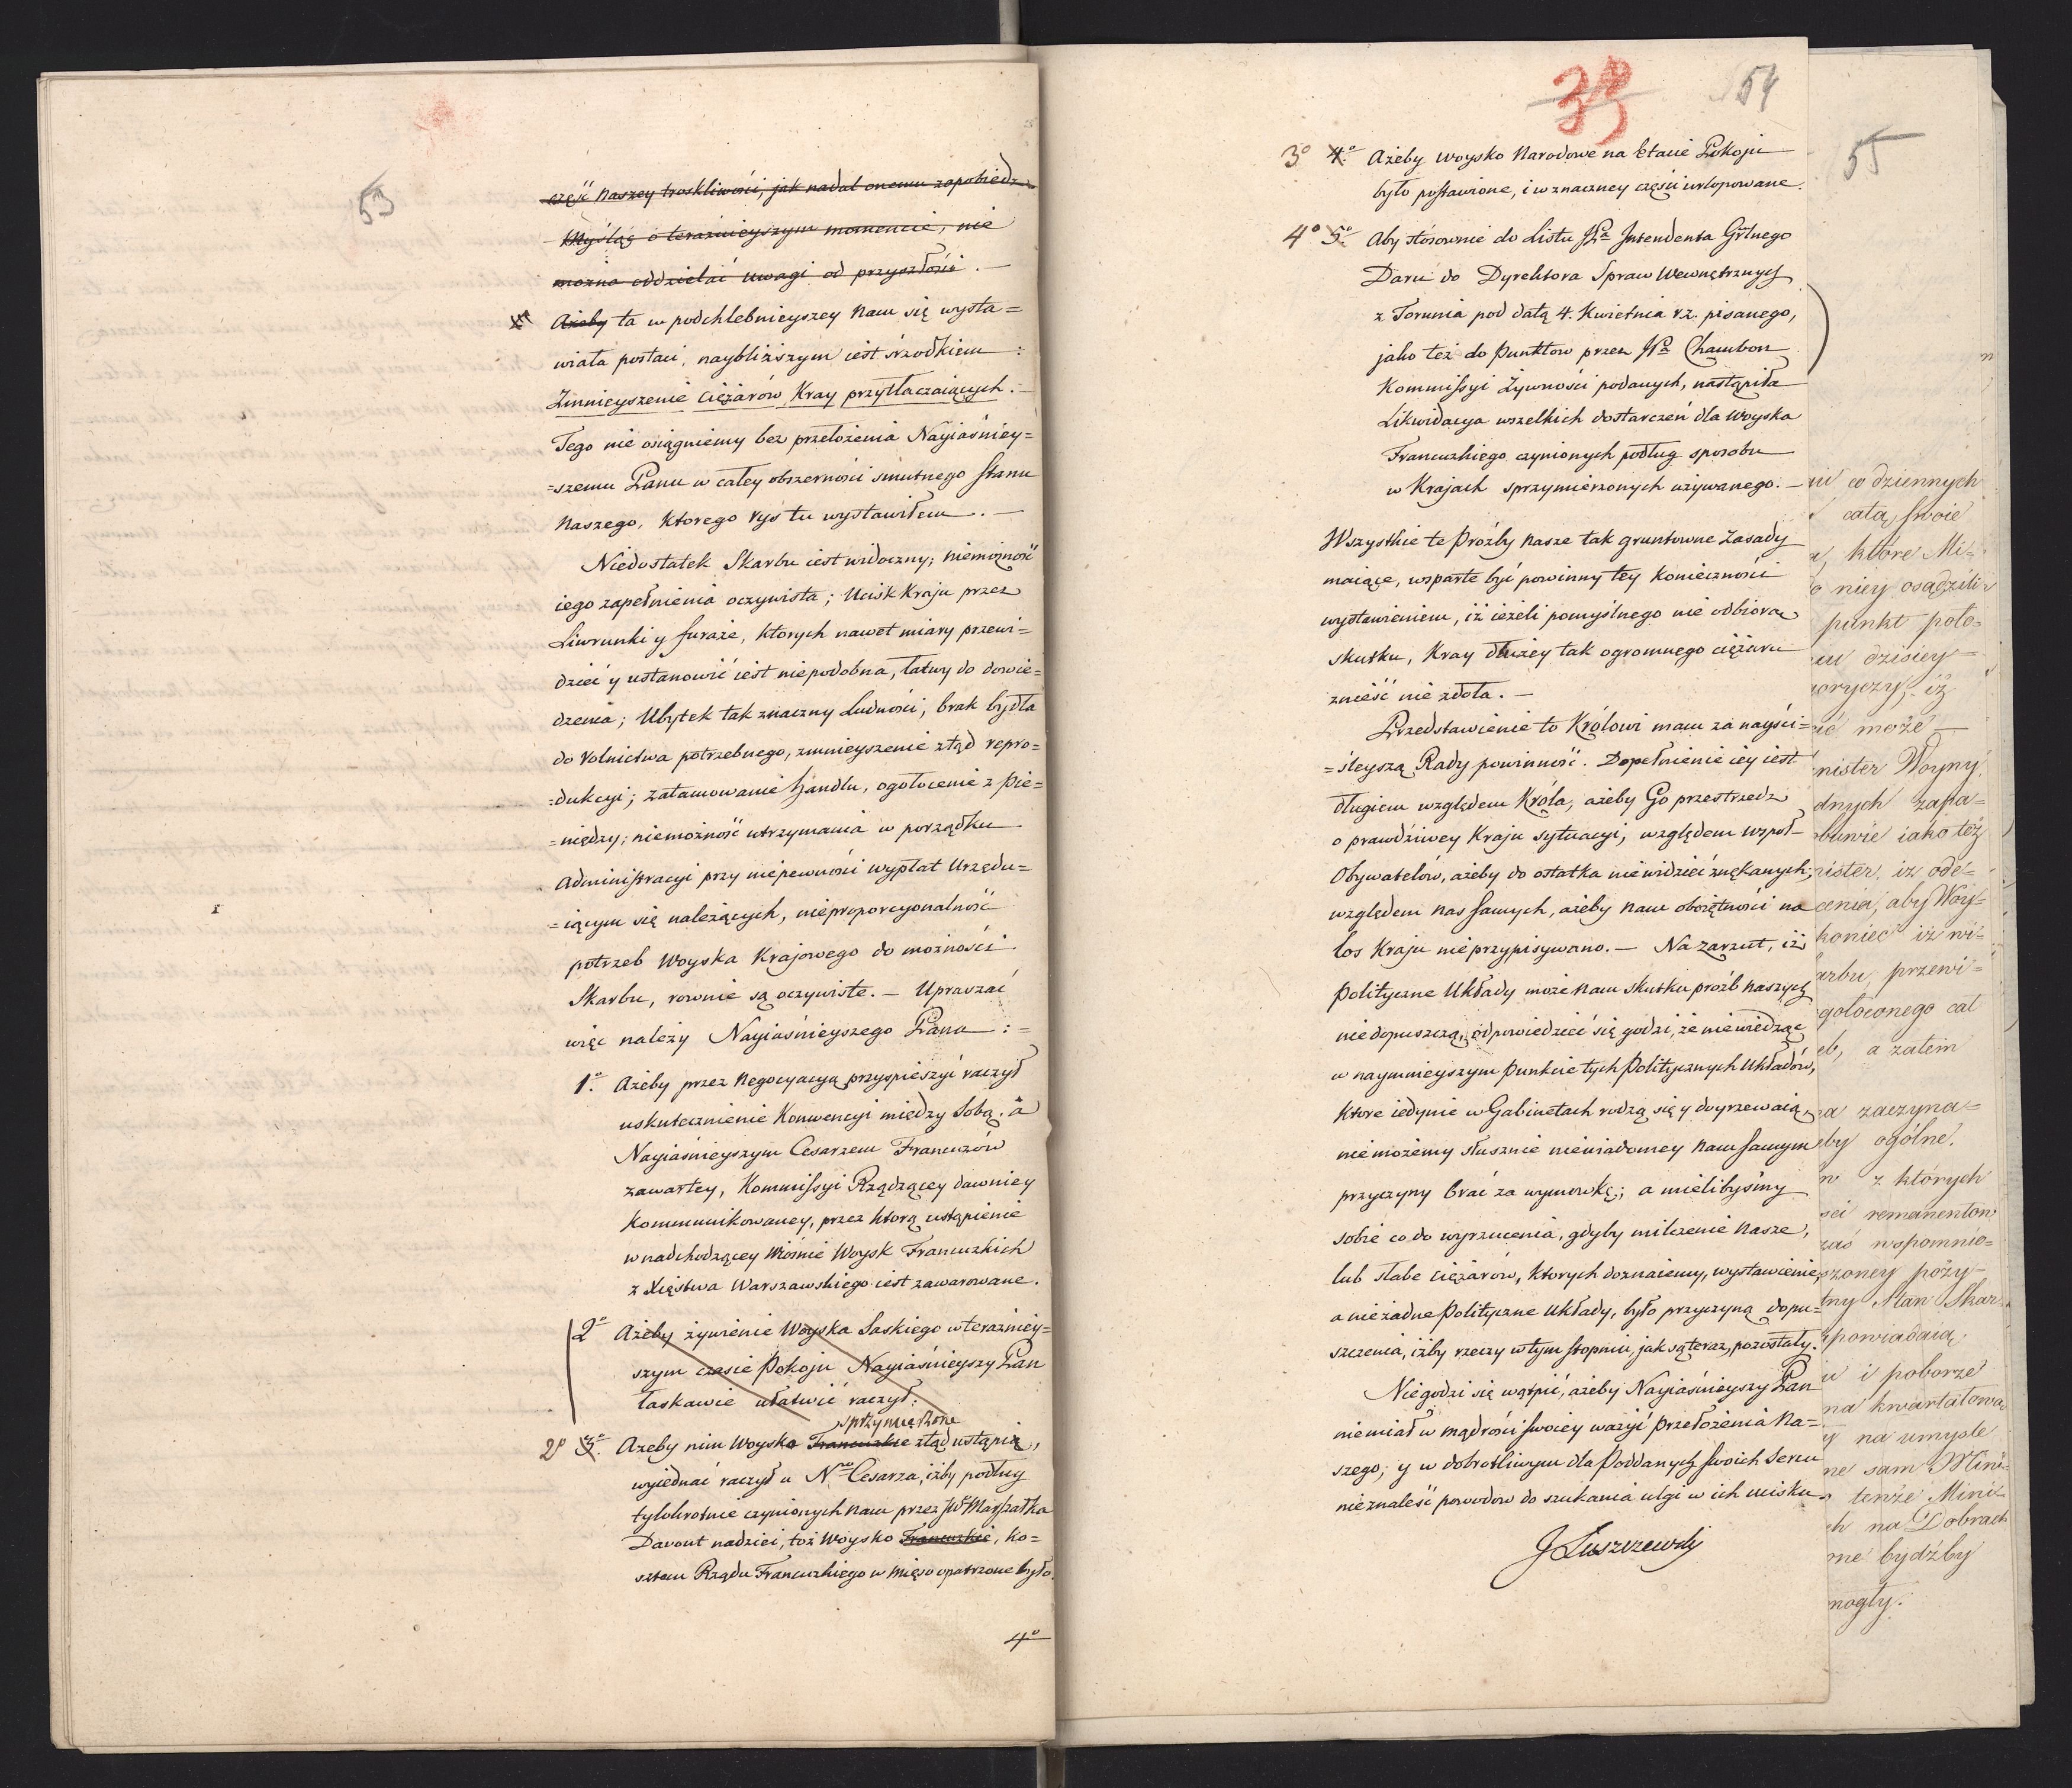 53
część naszey troskliwości, jak nadal onemu zapobiedz
Myśląc o teraźnieyszym momencie, nie
można oddzielać uwagi od przyszłości. —
Ażeby ta w podchlebnieyszey nam się wysta=
wiała postaci, naybliższym iest śrzodkiem:
Zmnieyszenie ciężarów Kray przytłaczaiących. —
Tego nie osiągniemy bez przełożenia Nayiaśniey=
=szemu Panu w całey obszerności smutnego stanu
naszego, ktorego rys tu wystawiłem. —
Niedostatek Skarbu iest widoczny; niemożność
iego zapełnienia oczywista; Ucisk Kraju przez
Liwrunki y furaże, ktorych nawet miary przewi=
dzieć y ustanowić iest niepodobna, łatwy do dowie=
dzenia; Ubytek tak znaczny Ludności, brak bydła
do rolnictwa potrzebnego, zmnieyszenie ztąd repro=
=dukcyi; zatamowanie handlu, ogołocenie z pie=
=niędzy; niemożność utrzymania w porządku
Administracyi przy niepewności wypłat Urzędu=
=iącym się należących, nieproporcyonalność
potrzeb Woyska Krajowego do możności
Skarbu, rownie są oczywiste. — Upraszać
więc należy Nayiaśnieyszego Pana :=
1.o Ażeby przez negocyacyą przyspieszyć raczył
uskutecznienie Konwencyi między Sobą, a
Nayiaśnieyszym Cesarzem Francuzów
zawartey, Kommissyi Rządzącey dawniey
kommunikowaney, przez ktorą ustąpienie
w nadchodzącey wiośnie Woysk Francuzkich
z Xięstwa Warszawskiego iest zawarowane.
2o Ażeby żywienie Woyska Saskiego w teraźniey=
szym czasie Pokoju Nayiaśnieyszy Pan
łaskawie ułatwić raczył:
sprzymierzone
2o 3.o Ażeby nim Woyska Francuzkie ztąd ustąpią,
wyiednać raczył u Ngo Cesarza, iżby podług
tylokrotnie czynionych nam przez JW Marszałka
Davout nadziei, toż Woysko Francuzkie, ko=
sztem Rządu Francuzkiego w mięso opatrzone było.
4o
39 54
3o 4.o Ażeby woysko Narodowe na Etacie Pokoju
było postawione, i w znaczney części urlopowane.
4o 5o Aby stosownie do Listu JPa Intendenta Grlnego
Daru do Dyrektora Spraw Wewnętrznych
z Torunia pod datą 4. Kwietnia r.z. pisanego,
jako też do punktow przez JPa Chambon
Kommissyi Żywności podanych, nastąpiła
Likwidacya wszelkich dostarczeń dla Woyska
Francuzkiego czynionych podług sposobu
w Krajach sprzymierzonych używanego. —
Wszystkie te prośby nasze tak gruntowne zasady
maiące, wsparte być powinny tey konieczności
wystawieniem, iż ieżeli pomyślnego nie odbiorą
skutku, Kray dłużey tak ogromnego ciężaru
znieść nie zdoła. —
Przedstawienie to Królowi mam za nayści=
=śleyszą Rady powinność. Dopełnienie iey iest
długiem względem Króla, ażeby Go przestrzedz
o prawdziwey Kraju sytuacyi, względem współ—
Obywatelów, ażeby do ostatka nie widzieć znękanych;
względem nas samych, ażeby nam oboiętności na
los Kraju nie przypisywano. — Na zarzut, iż
Polityczne Układy może nam skutku próśb naszych
nie dopuszczą, odpowiedzieć się godzi, że nie wiedząc
w naymnieyszym punkcie tych Politycznych Układów,
Ktore iedynie w Gabinetach rodzą się y doyrzewaią,
nie możemy słusznie niewiadomey nam samym
przyczyny brać za wymowkę; a mielibyśmy
sobie co do wyrzucenia, gdyby milczenie nasze,
lub słabe ciężarów, ktorych doznaiemy, wystawienie,
a nie żadne Polityczne Układy, było przyczyną dopu=
szczenia, iżby rzeczy w tym stopniu, jak są teraz, pozostały.
Nie godzi się wątpić, ażeby Nayiaśnieyszy Pan
nie miał w mądrości swoiey ważyć przełożenia na=
szego; y w dobrotliwym dla Poddanych swoich sercu
nie znaleść powodow do szukania ulgi w ich ucisku.
J Łuszczewski
55
co dziennych
całą swoie
które Mi=
niey osądzili
punkt poło=
dzisiey=
iż
może —
Woyny
zapa=
iako też
iż ode=
aby Woy=
koniec iż wi=
przewi=
a zatem
zaczyna=
ogólne.
z których
remanentów
wspomnio=
poży=
Stan Skar
i poborze
kwartałowa
na umyśle
sam Mini=
tenże Mini=
na Dobrach
bydźby
mogły.